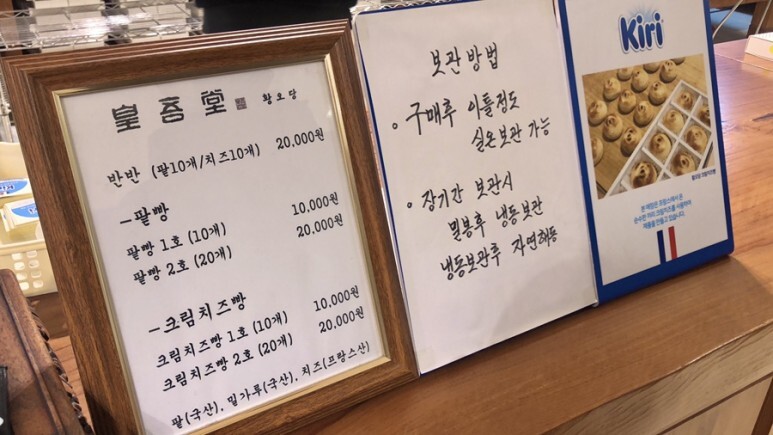 皇吾堂 황오당
반반 (팥10개/치즈10개) 20,000원
-팥빵
팥빵 1호 (10개) 10,000원
팥빵 2호 (20개) 20,000원
-크림치즈빵
크림치즈빵 1호 (10개) 10,000원
크림치즈빵 2호 (20개) 20,000원
팥(국산), 밀가루(국산), 치즈(프랑스산)
보관방법
구매후 이틀정도
실온보관 가능
장기간 보관시
밀봉후 냉동보관
냉동보관후 자연해동
Kiri
본 매장은 프랑스에서 온
순수한 끼리 크림치즈를 사용하여
제품을 만들고 있습니다.